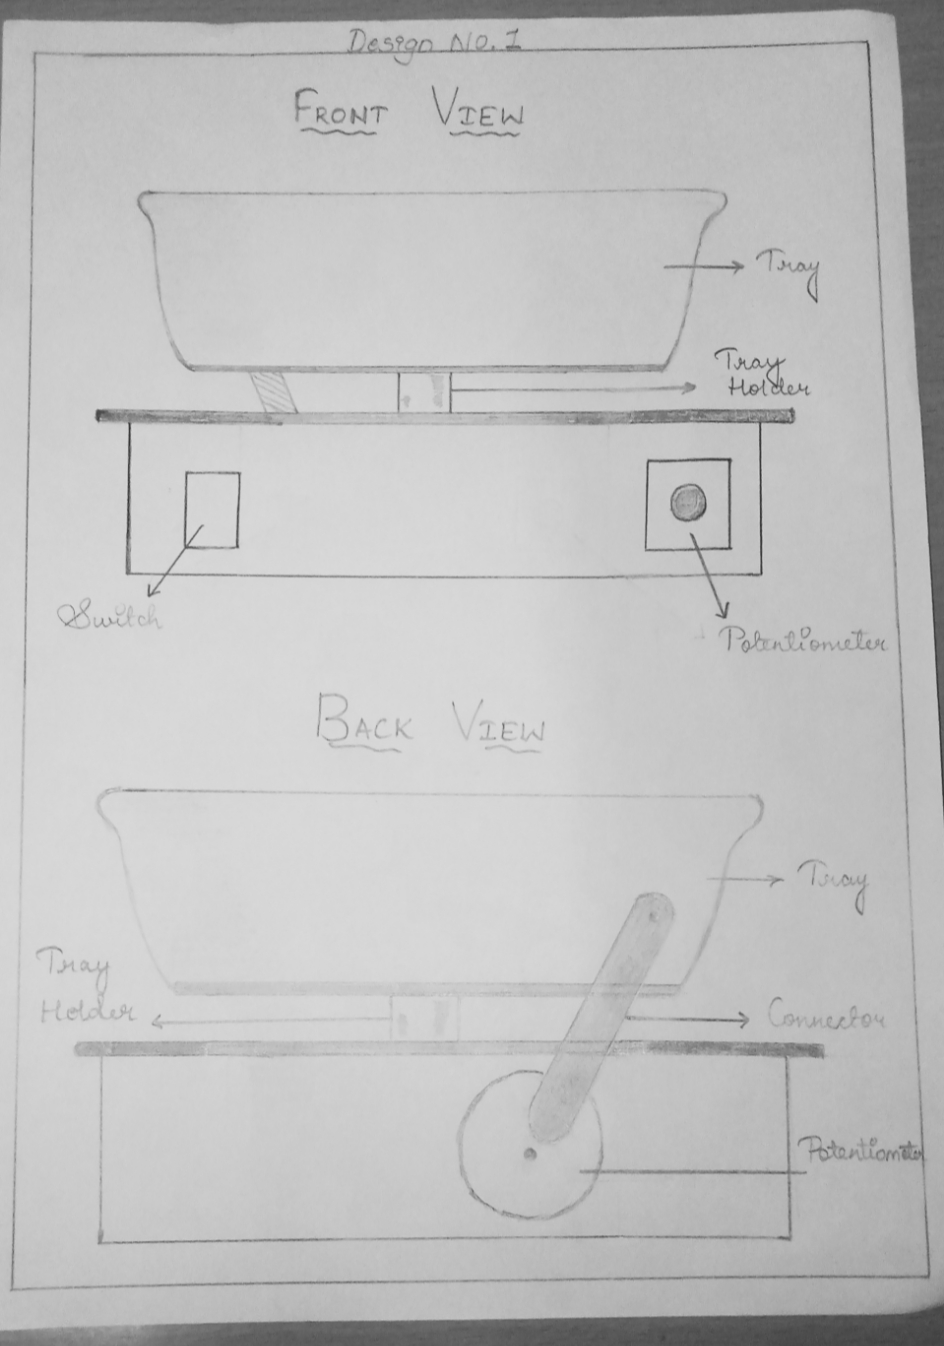 Design No. 1
FRONT VIEW
Tray
Tray
Holder
Switch
Potentiometer
BACK VIEW
Tray
Tray
Holder
Connector
Potentiometer